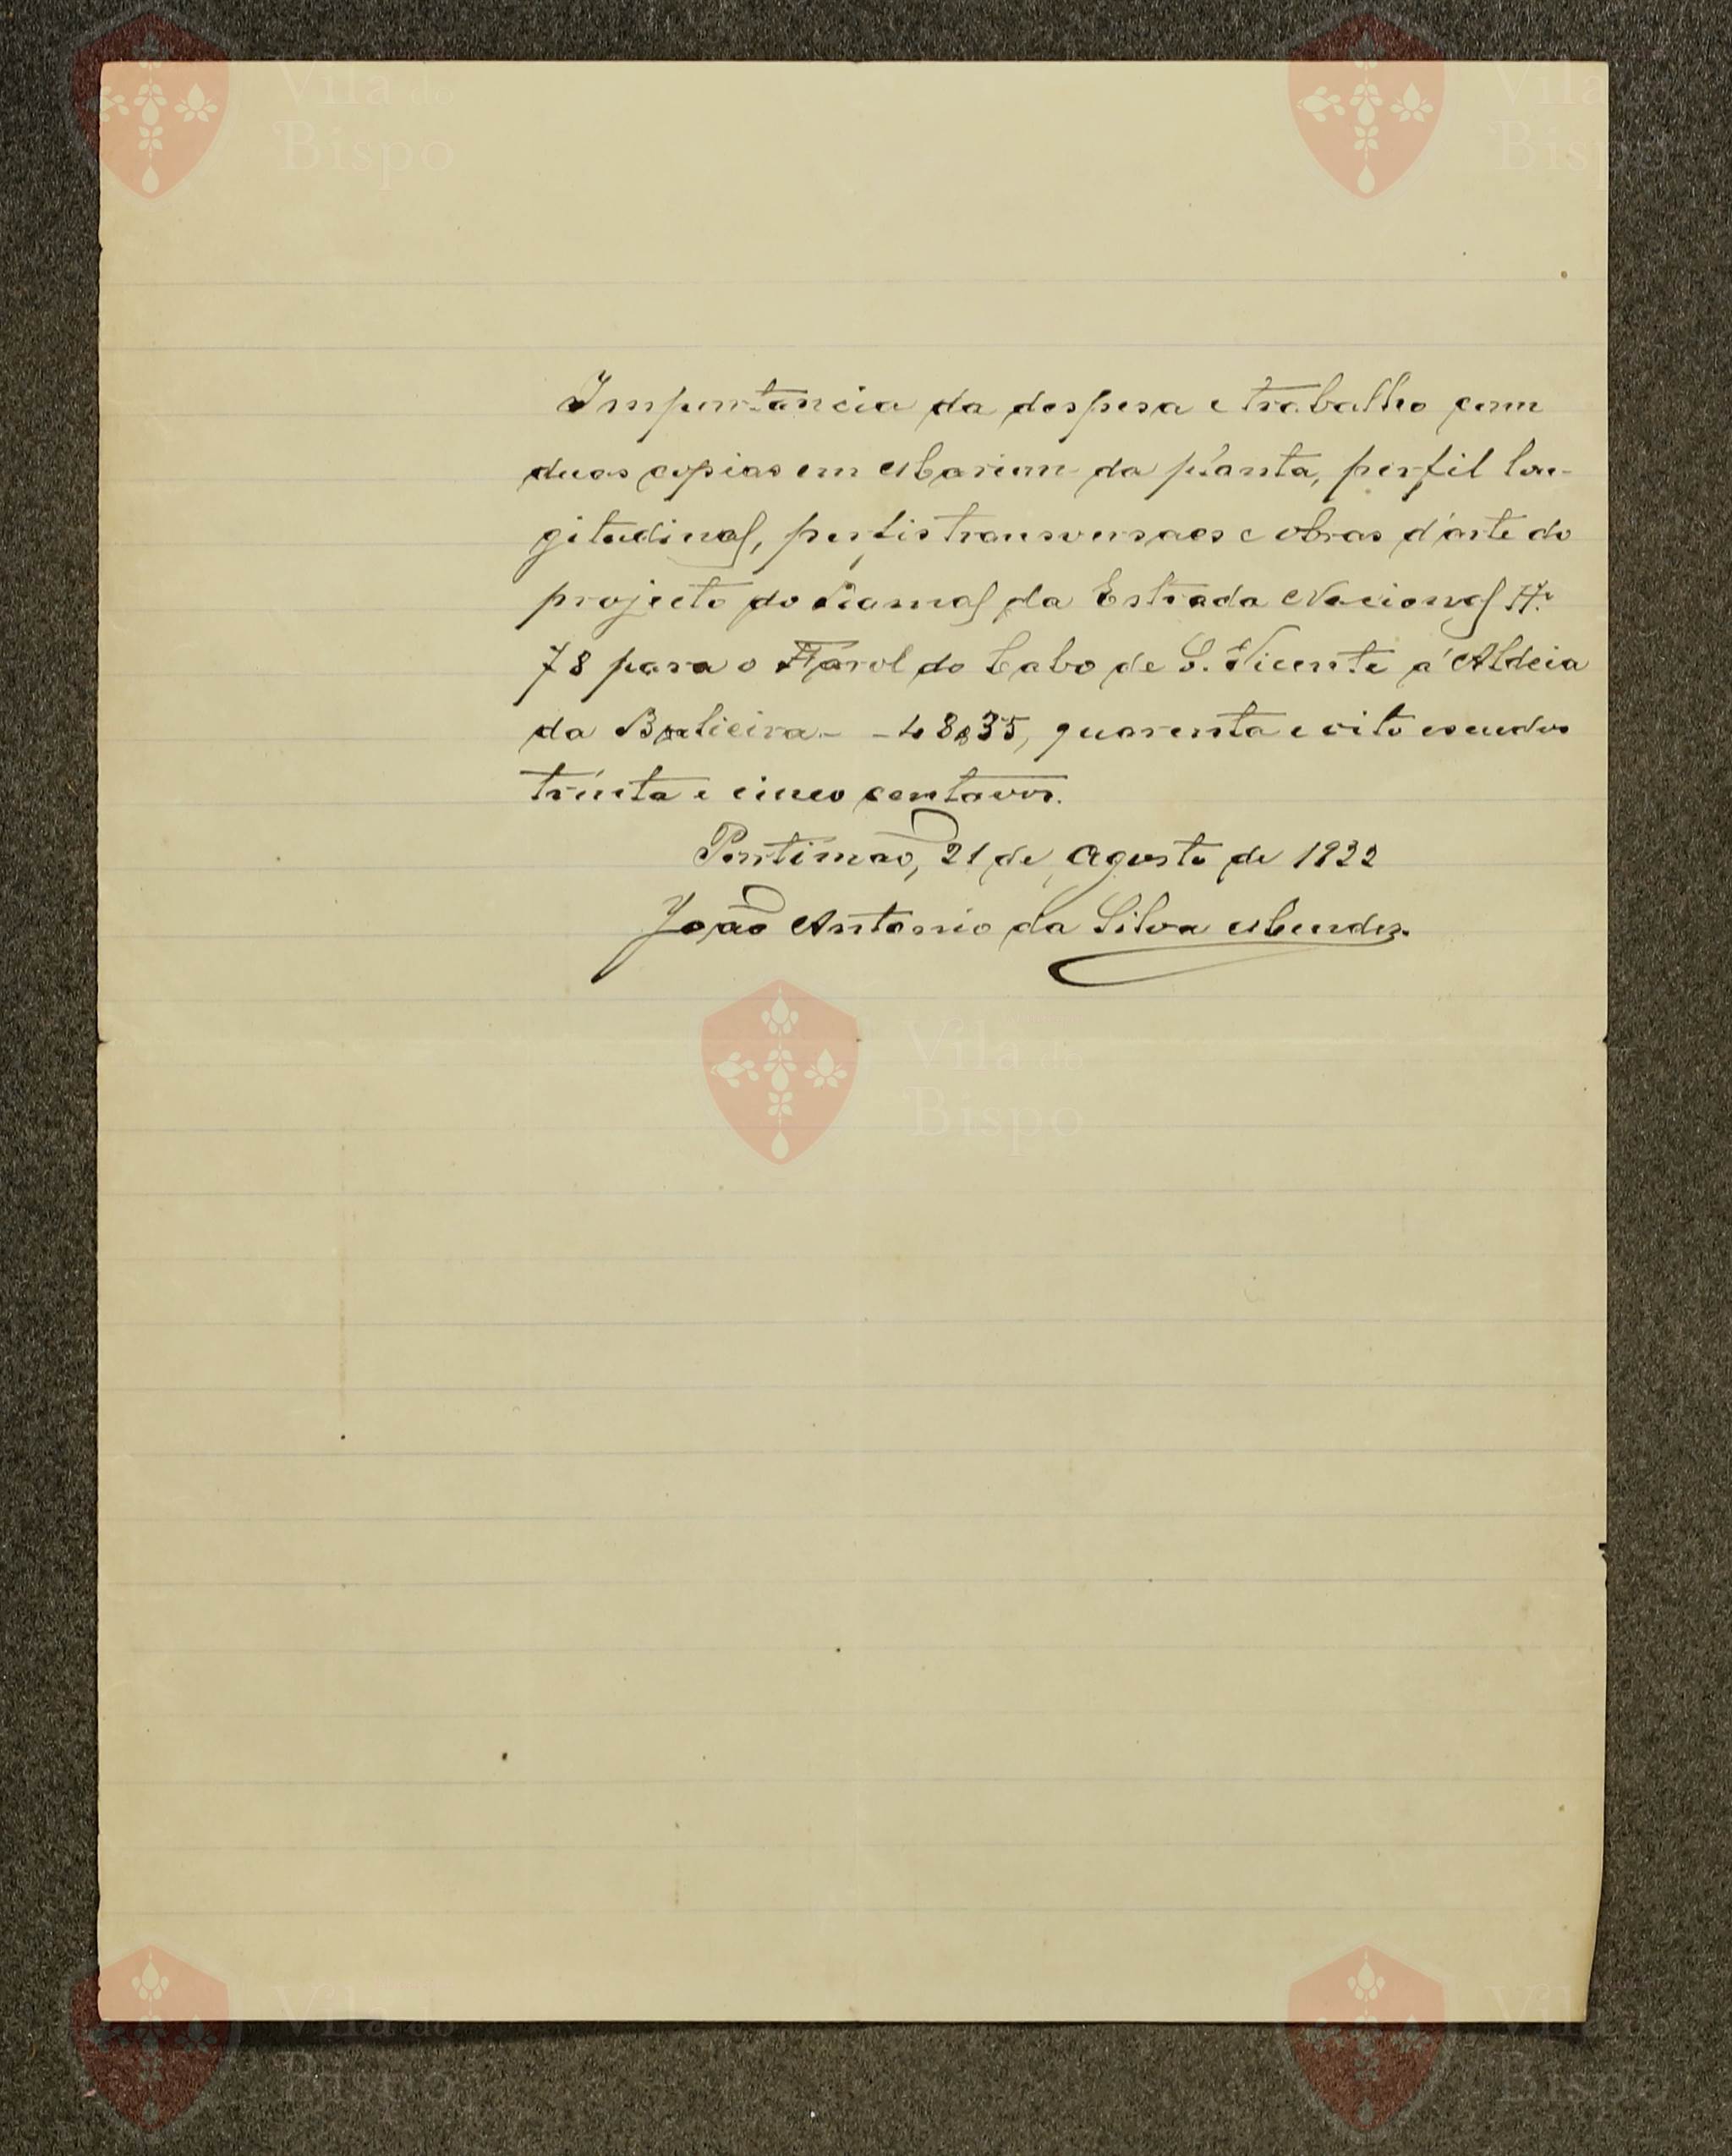 Vila do
Bispo
Vila
Bispo
Importancia da despesa e trabalho com
duas copias em Marion da planta, perfil lon-
gitudinal, perfis transversaes e obras d'arte do
projecto do Ramal da Estrada Nacional N.º
78 para o Farol do Cabo de S. Vicente á Aldeia
da Balieira - - 48$35, quarenta e oito escudos
trinta e cinco centavos.
Portimão, 21 de Agosto de 1922
João Antonio da Silva Mendes.
Vila do
Bispo
Vila do
Bispo
Vila do
Bispo